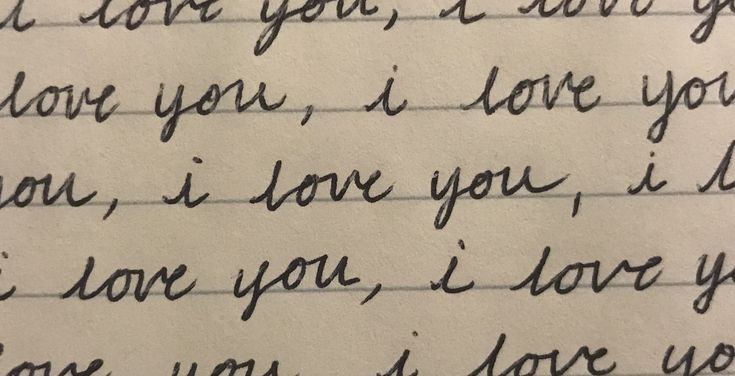 i love you, i love
love you, i love you
you, i love you, i
i love you, i love
love you, i love